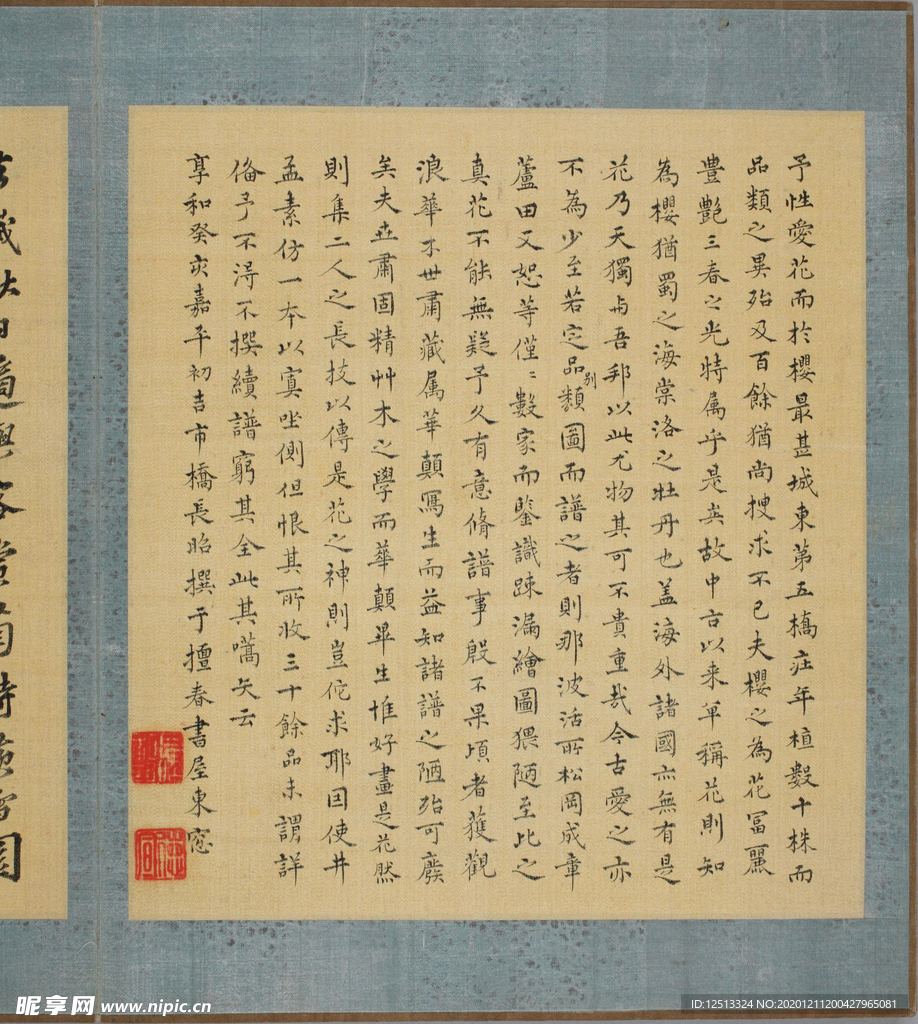 予性愛花而於櫻最甚城東第五橋莊年植數十株而
品類之異殆及百餘猶尚搜求不已夫櫻之為花冨麗
豊艶三春之光特属乎是矣故中古以来單稱花則知
為櫻猶蜀之海棠洛之牡丹也盖海外諸國亦無有是
花乃天獨与吾邦以此尤物其可不貴重哉今古愛之亦
不為少至若定品別類圖而譜之者則那波活所松岡成章
蘆田又恕等僅〻數家而鑒識踈漏繪圖猥陋至比之
真花不能無疑予久有意脩譜事殷不果頃者獲觀
浪華不世肅藏属華顛寫生而益知諸譜之陋殆可廢
矣夫世肅固精艸木之學而華顛畢生惟好畫是花然
則集二人之長技以傳是花之神則豈佗求耶因使井
孟素仿一本以寘坐側但恨其所收三十餘品未謂詳
俻予不淂不撰續譜窮其全此其嚆矢云
享和癸亥嘉平初吉市橋長昭撰于擅春書屋東窓
昵享网 www.nipic.cn
ID:12513324 NO:20201211200427965081